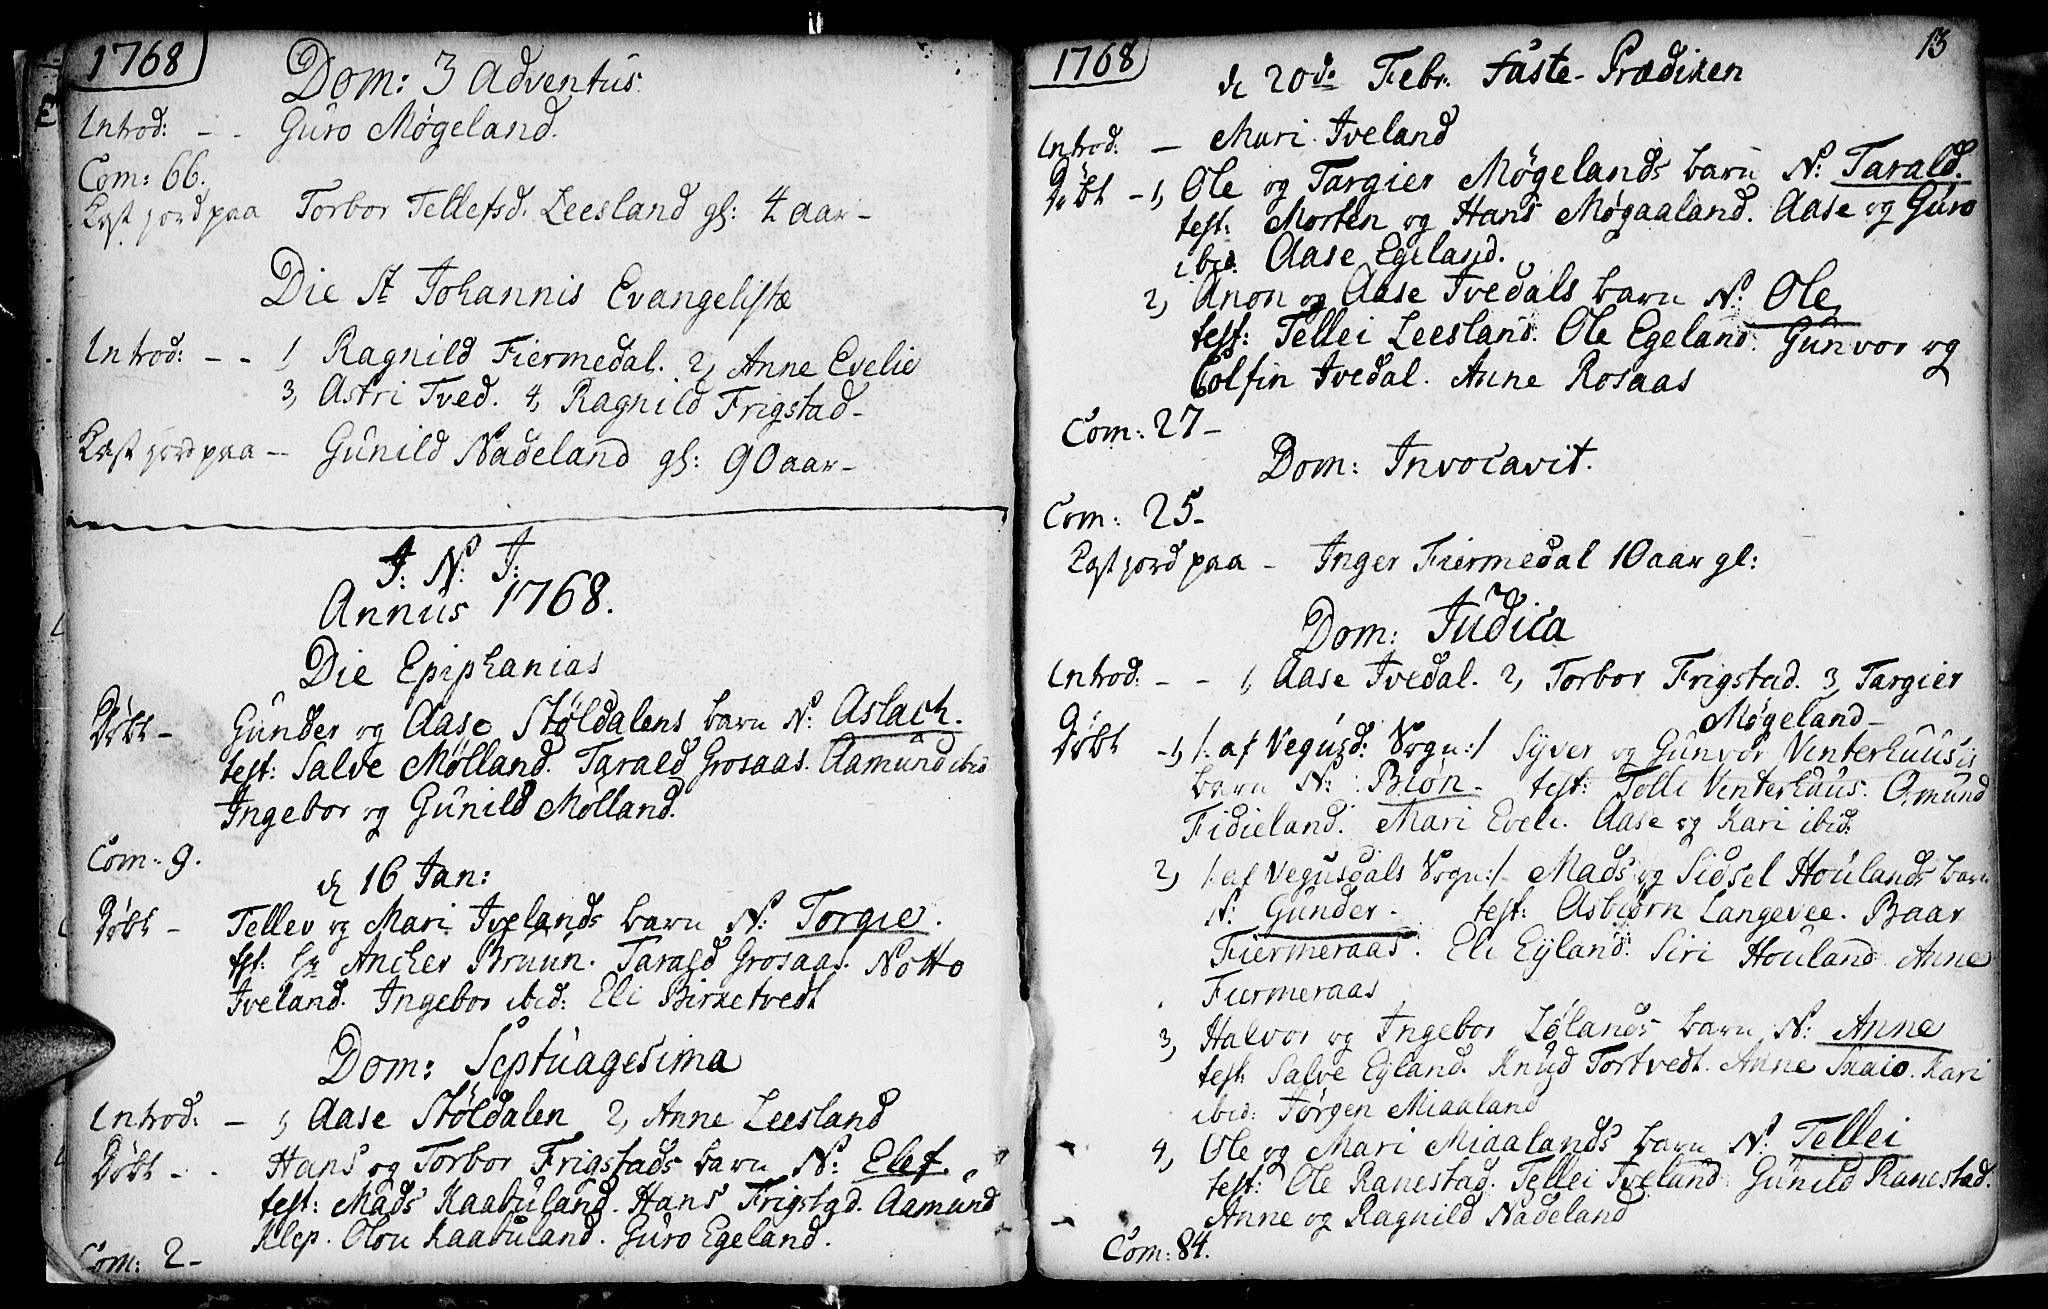 1768
Dom: 3 Adventus
Introd: - - Guro Møgeland.
Com: 66.
Kast jord paa Torbor Tellefsd. Leesland gl: 4 aar-
Die St Johannis Evangelistæ
Introd: - - 1, Ragnild Fiermedal. 2, Anne Evelie
3, Astri Tved. 4, Ragnild Frigstad-
Kast jord paa -- Gunild Nadeland gl: 90 aar-
J: N: J:
Annus 1768.
Die Epiphanias
Døbt - Gunder og Aase Støldalens barn N: Aslach.
test: Salve Mølland. Tarald Grosaas. Aamund ibid
Ingebor og Gunild Mølland.
Com: 9.
d 16 Jan:
Døbt - Tellev og Mari Ivelands barn N: Torgie.
tst: Hr Ancher Bruun. Tarald Grosaas. Notto
Iveland. Ingebor ibid: Eli Birketvedt
Dom: Septuagesima
Introd: - 1, Aase Støldalen 2, Anne Leesland
Døbt - - Hans og Torbor Frigstads barn N: Elef.
test: Mads Kaabuland. Hans Frigstad. Aamund
Klep. Olou Kaabuland. Guro Egeland.
Com: 2-
1768
13
d 20de Febr. Faste-Prædiken
Introd: - Mari Iveland
Døbt - 1, Ole og Targier Møgelands barn N: Tarald.
test: Morten og Hans Møgaaland. Aase og Guro
ibid. Aase Egeland.
2, Anon og Aase Ivedals barn N: Ole
test: Tellei Leesland. Ole Egeland. Gunvor og
Colfin Ivedal. Anne Rosaas
Com: 27-
Dom: Invocavit.
Com: 25-
Kast jord paa - Inger Fiermedal 10 aar gl:
Dom: Judica
Introd: - - 1, Aase Ivedal. 2, Torbor Frigstad. 3, Targier
Møgeland-
Døbt - 1, /: af Vegusd: Sogn:/ Syver og Gunvor Vinterhuus's
barn N: Biøn- test: Telli Vinterhuus. Omund
Fidieland. Mari Eveli. Aase og Kari ibid.
2, /: af Vegusdals Sogn:/ Mads og Sidsel Houlands barn
N: Gunder- test: Asbiørn Langevee. Baar
Fiermeraas. Eli Eyland. Siri Houland. Anne
Fiermeraas
3, Halvor og Ingebor Lølands barn N: Anne
test: Salve Eyland. Knud Tortvedt. Anne Skaio. Kari
ibid: Jørgen Miaaland
4, Ole og Mari Miaalands barn N: Tellei
test: Ole Ranestad. Tellei Iveland. Gunild Ranestad.
Anne og Ragnild Nadeland
Com: 84.